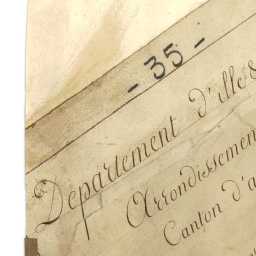 - 35 -
Département d'Ille &
Arrondissemen
Canton d'a